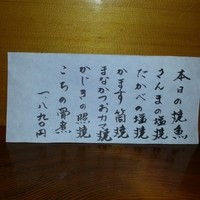 本日の焼魚
さんまの塩焼
たかべの塩焼
かます筒焼
まながつおカマ焼
かじきの照焼
こちの骨煮
一、八九〇円